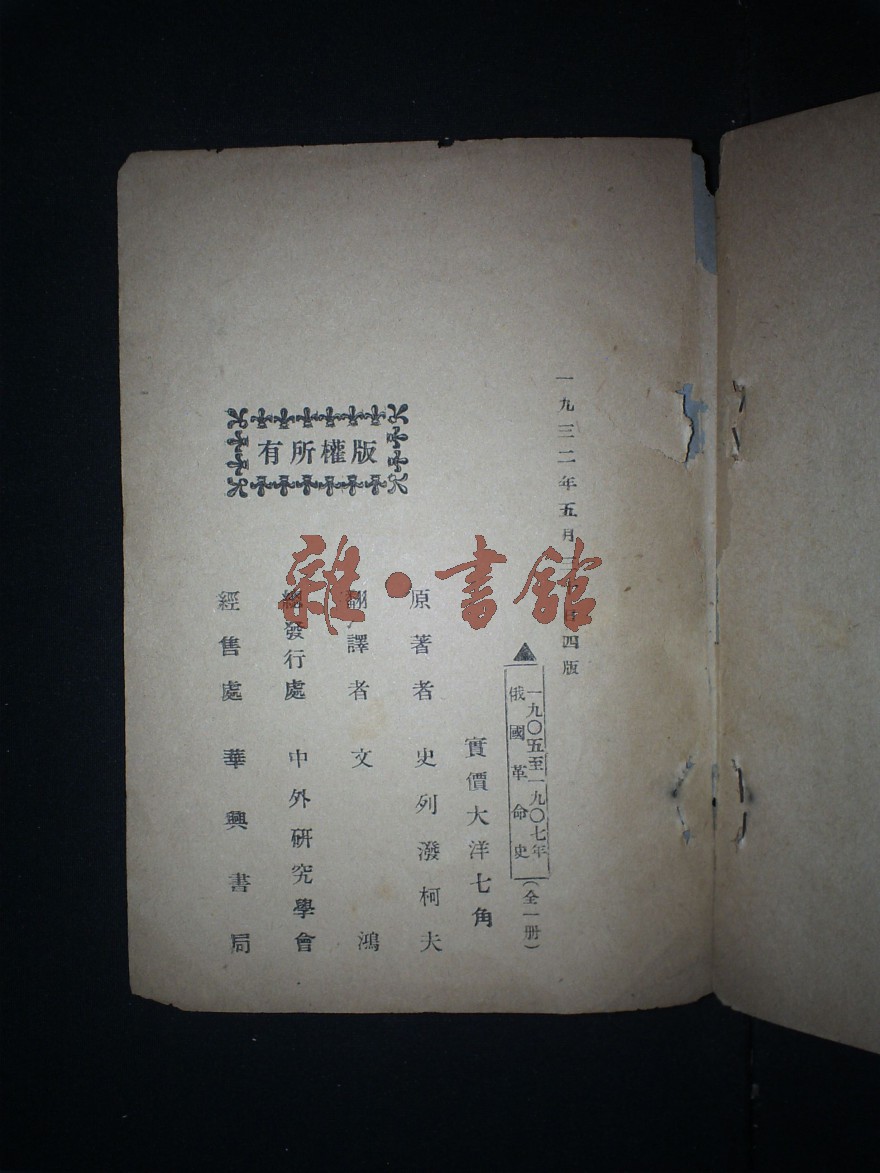 一九三二年五月三　日四版
▲
一九〇五至一九〇七年
俄國革命史
（全一册）
實價大洋七角
原著者　史列潑柯夫
翻譯者　文鴻
總發行處　中外研究學會
經售處　華興書局
版權所有
雜•書館